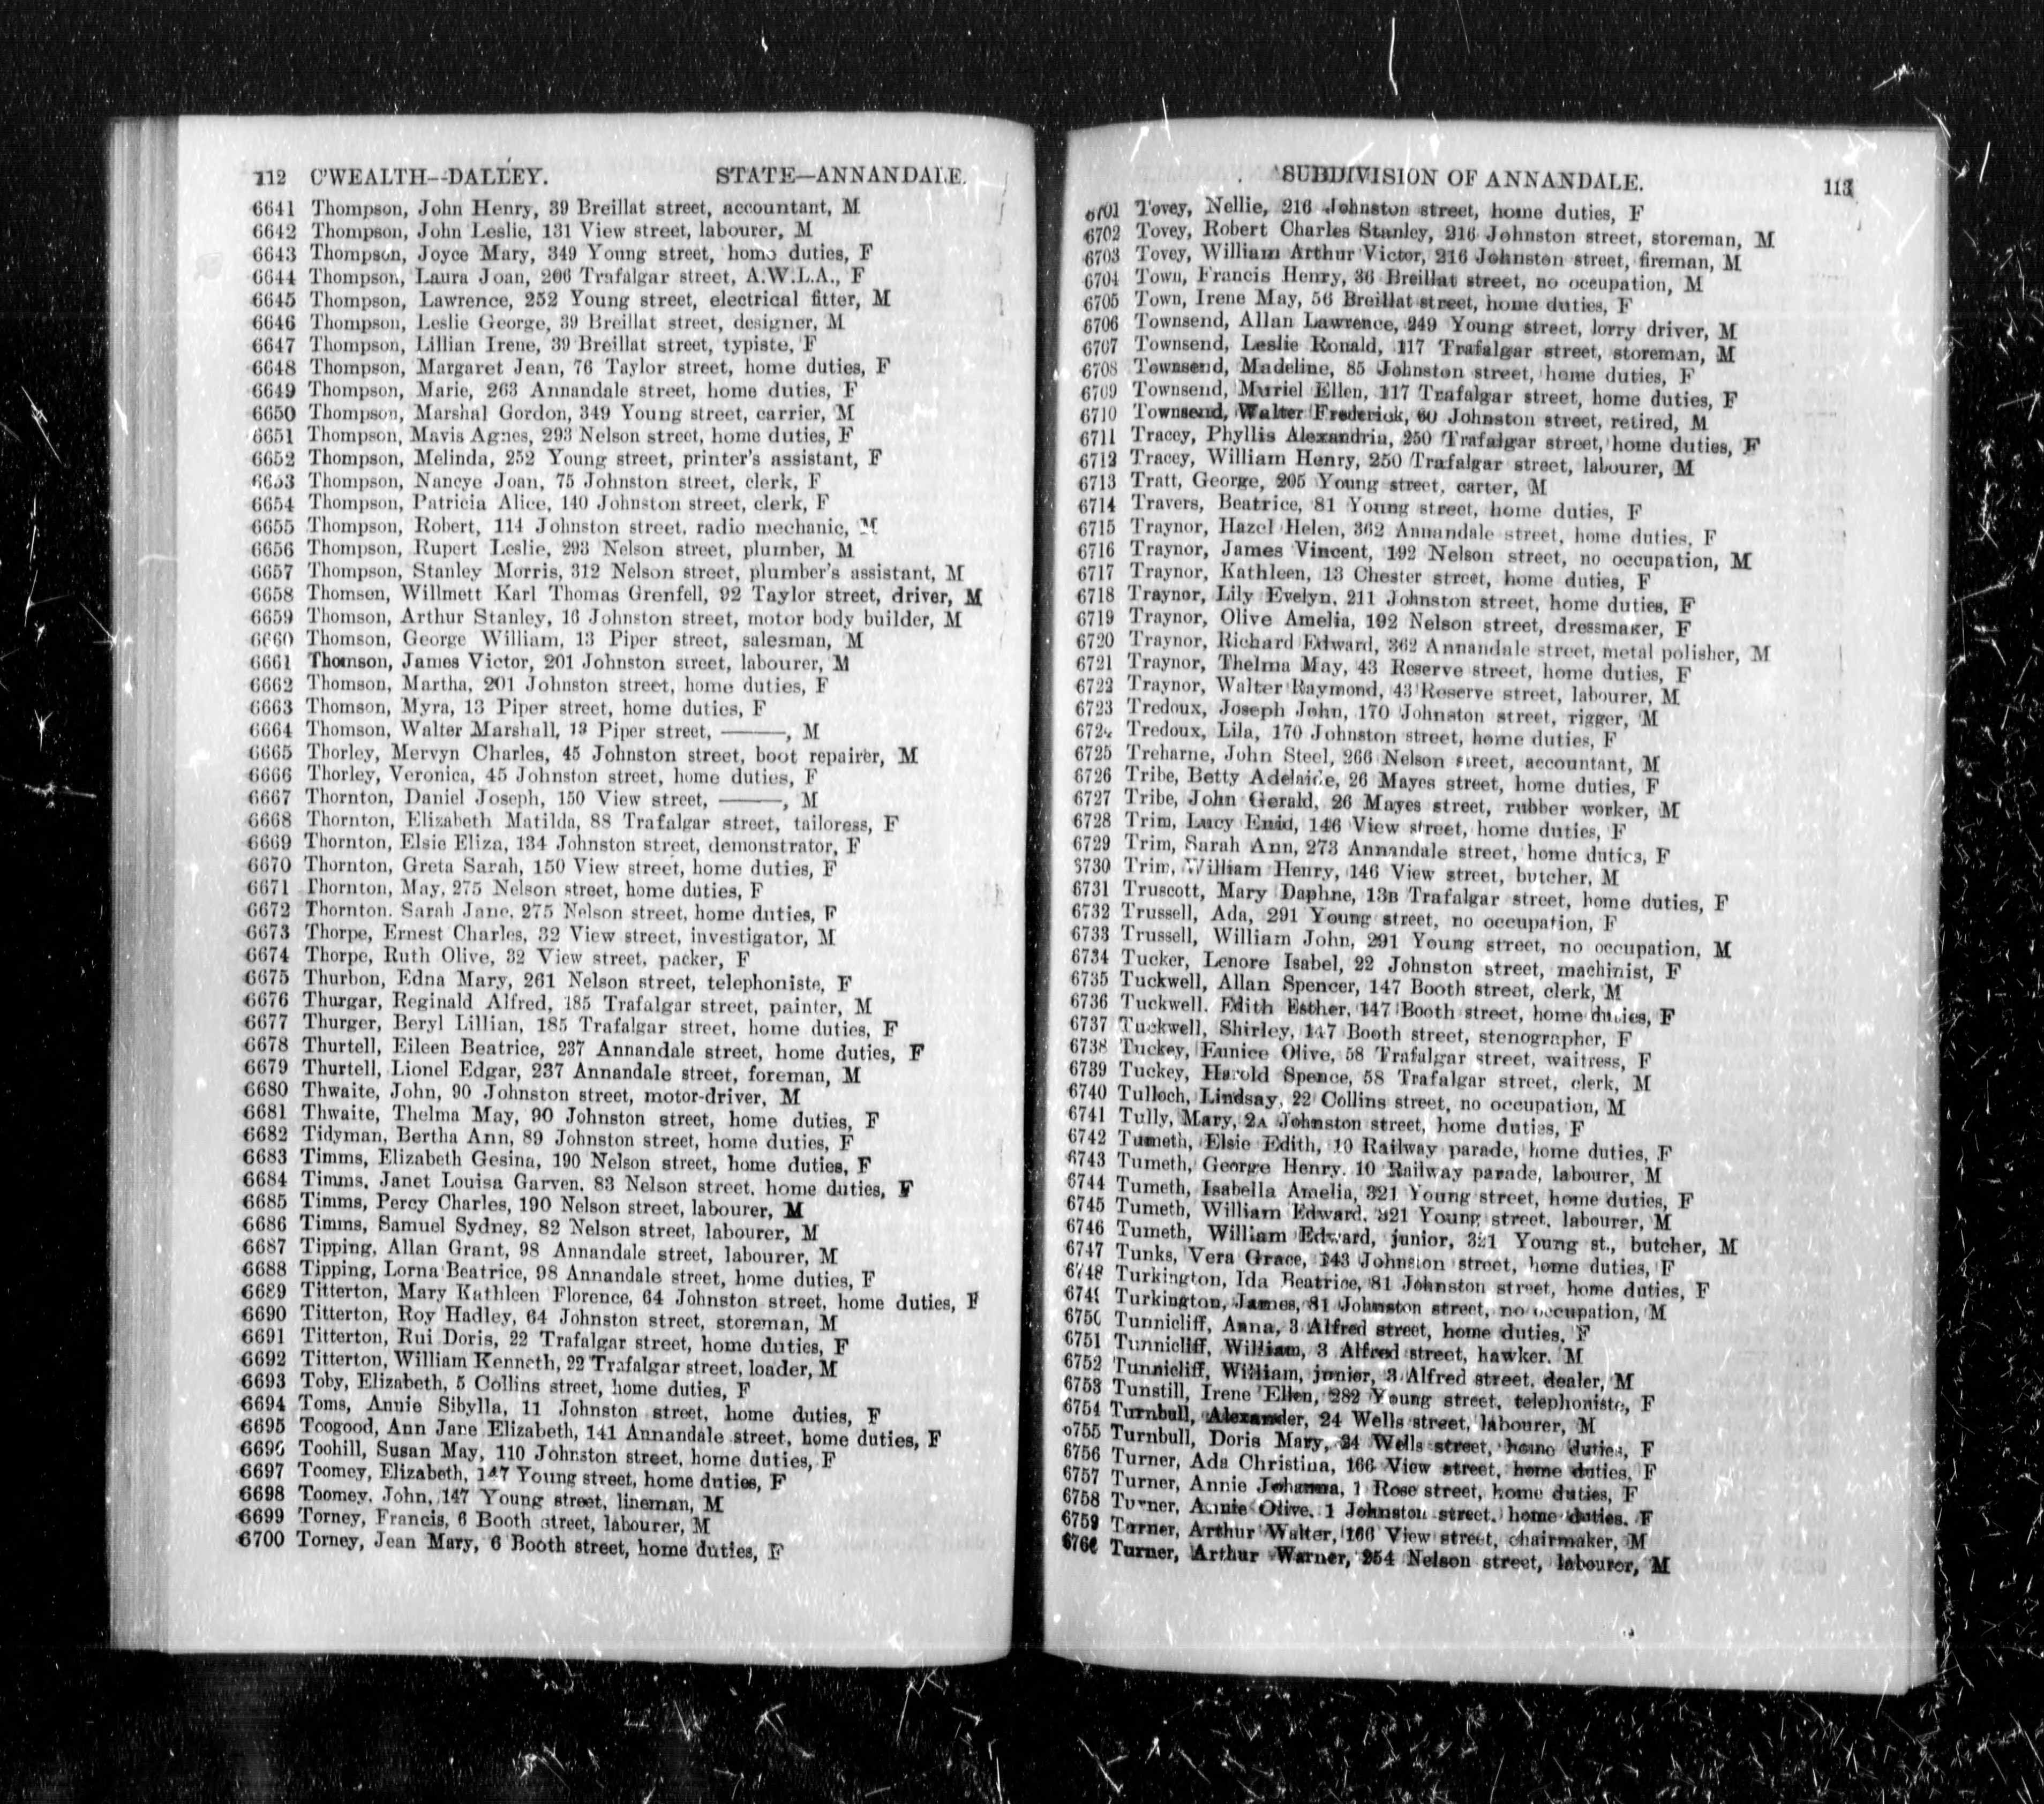 112 C'WEALTH--DALLEY. STATE—ANNANDALE.
6641 Thompson, John Henry, 39 Breillat street, accountant, M
6642 Thompson, John Leslie, 131 View street, labourer, M
6643 Thompson, Joyce Mary, 349 Young street, home duties, F
6644 Thompson, Laura Joan, 206 Trafalgar street, A.W.L.A., F
6645 Thompson, Lawrence, 252 Young street, electrical fitter, M
6646 Thompson, Leslie George, 39 Breillat street, designer, M
6647 Thompson, Lillian Irene, 39 Breillat street, typiste, F
6648 Thompson, Margaret Jean, 76 Taylor street, home duties, F
6649 Thompson, Marie, 263 Annandale street, home duties, F
6650 Thompson, Marshal Gordon, 349 Young street, carrier, M
6651 Thompson, Mavis Agnes, 293 Nelson street, home duties, F
6652 Thompson, Melinda, 252 Young street, printer's assistant, F
6653 Thompson, Nancye Joan, 75 Johnston street, clerk, F
6654 Thompson, Patricia Alice, 140 Johnston street, clerk, F
6655 Thompson, Robert, 114 Johnston street, radio mechanic, M
6656 Thompson, Rupert Leslie, 293 Nelson street, plumber, M
6657 Thompson, Stanley Morris, 312 Nelson street, plumber's assistant, M
6658 Thomsen, Willmett Karl Thomas Grenfell, 92 Taylor street, driver, M
6659 Thomson, Arthur Stanley, 16 Johnston street, motor body builder, M
6660 Thomson, George William, 13 Piper street, salesman, M
6661 Thomson, James Victor, 201 Johnston street, labourer, M
6662 Thomson, Martha, 201 Johnston street, home duties, F
6663 Thomson, Myra, 13 Piper street, home duties, F
6664 Thomson, Walter Marshall, 13 Piper street, ———, M
6665 Thorley, Mervyn Charles, 45 Johnston street, boot repairer, M
6666 Thorley, Veronica, 45 Johnston street, home duties, F
6667 Thornton, Daniel Joseph, 150 View street, ———, M
6668 Thornton, Elizabeth Matilda, 88 Trafalgar street, tailoress, F
6669 Thornton, Elsie Eliza, 134 Johnston street, demonstrator, F
6670 Thornton, Greta Sarah, 150 View street, home duties, F
6671 Thornton, May, 275 Nelson street, home duties, F
6672 Thornton, Sarah Jane, 275 Nelson street, home duties, F
6673 Thorpe, Ernest Charles, 32 View street, investigator, M
6674 Thorpe, Ruth Olive, 32 View street, packer, F
6675 Thurbon, Edna Mary, 261 Nelson street, telephoniste, F
6676 Thurgar, Reginald Alfred, 185 Trafalgar street, painter, M
6677 Thurger, Beryl Lillian, 185 Trafalgar street, home duties, F
6678 Thurtell, Eileen Beatrice, 237 Annandale street, home duties, F
6679 Thurtell, Lionel Edgar, 237 Annandale street, foreman, M
6680 Thwaite, John, 90 Johnston street, motor-driver, M
6681 Thwaite, Thelma May, 90 Johnston street, home duties, F
6682 Tidyman, Bertha Ann, 89 Johnston street, home duties, F
6683 Timms, Elizabeth Gesina, 190 Nelson street, home duties, F
6684 Timms, Janet Louisa Garven, 83 Nelson street, home duties, F
6685 Timms, Percy Charles, 190 Nelson street, labourer, M
6686 Timms, Samuel Sydney, 82 Nelson street, labourer, M
6687 Tipping, Allan Grant, 98 Annandale street, labourer, M
6688 Tipping, Lorna Beatrice, 98 Annandale street, home duties, F
6689 Titterton, Mary Kathleen Florence, 64 Johnston street, home duties, F
6690 Titterton, Roy Hadley, 64 Johnston street, storeman, M
6691 Titterton, Rui Doris, 22 Trafalgar street, home duties, F
6692 Titterton, William Kenneth, 22 Trafalgar street, loader, M
6693 Toby, Elizabeth, 5 Collins street, home duties, F
6694 Toms, Annie Sibylla, 11 Johnston street, home duties, F
6695 Toogood, Ann Jane Elizabeth, 141 Annandale street, home duties, F
6696 Toohill, Susan May, 110 Johnston street, home duties, F
6697 Toomey, Elizabeth, 147 Young street, home duties, F
6698 Toomey, John, 147 Young street, lineman, M
6699 Torney, Francis, 6 Booth street, labourer, M
6700 Torney, Jean Mary, 6 Booth street, home duties, F
SUBDIVISION OF ANNANDALE. 113
6701 Tovey, Nellie, 216 Johnston street, home duties, F
6702 Tovey, Robert Charles Stanley, 216 Johnston street, storeman, M
6703 Tovey, William Arthur Victor, 216 Johnston street, fireman, M
6704 Town, Francis Henry, 36 Breillat street, no occupation, M
6705 Town, Irene May, 56 Breillat street, home duties, F
6706 Townsend, Allan Lawrence, 249 Young street, lorry driver, M
6707 Townsend, Leslie Ronald, 117 Trafalgar street, storeman, M
6708 Townsend, Madeline, 85 Johnston street, home duties, F
6709 Townsend, Muriel Ellen, 117 Trafalgar street, home duties, F
6710 Townsend, Walter Frederick, 60 Johnston street, retired, M
6711 Tracey, Phyllis Alexandria, 250 Trafalgar street, home duties, F
6712 Tracey, William Henry, 250 Trafalgar street, labourer, M
6713 Tratt, George, 205 Young street, carter, M
6714 Travers, Beatrice, 81 Young street, home duties, F
6715 Traynor, Hazel Helen, 362 Annandale street, home duties, F
6716 Traynor, James Vincent, 192 Nelson street, no occupation, M
6717 Traynor, Kathleen, 13 Chester street, home duties, F
6718 Traynor, Lily Evelyn, 211 Johnston street, home duties, F
6719 Traynor, Olive Amelia, 192 Nelson street, dressmaker, F
6720 Traynor, Richard Edward, 362 Annandale street, metal polisher, M
6721 Traynor, Thelma May, 43 Reserve street, home duties, F
6722 Traynor, Walter Raymond, 43 Reserve street, labourer, M
6723 Tredoux, Joseph John, 170 Johnston street, rigger, M
6724 Tredoux, Lila, 170 Johnston street, home duties, F
6725 Treharne, John Steel, 266 Nelson street, accountant, M
6726 Tribe, Betty Adelaide, 26 Mayes street, home duties, F
6727 Tribe, John Gerald, 26 Mayes street, rubber worker, M
6728 Trim, Lucy Enid, 146 View street, home duties, F
6729 Trim, Sarah Ann, 273 Annandale street, home duties, F
6730 Trim, William Henry, 146 View street, butcher, M
6731 Truscott, Mary Daphne, 13B Trafalgar street, home duties, F
6732 Trussell, Ada, 291 Young street, no occupation, F
6733 Trussell, William John, 291 Young street, no occupation, M
6734 Tucker, Lenore Isabel, 22 Johnston street, machinist, F
6735 Tuckwell, Allan Spencer, 147 Booth street, clerk, M
6736 Tuckwell, Edith Esther, 147 Booth street, home duties, F
6737 Tuckwell, Shirley, 147 Booth street, stenographer, F
6738 Tuckey, Eunice Olive, 58 Trafalgar street, waitress, F
6739 Tuckey, Harold Spence, 58 Trafalgar street, clerk, M
6740 Tulloch, Lindsay, 22 Collins street, no occupation, M
6741 Tully, Mary, 2A Johnston street, home duties, F
6742 Tumeth, Elsie Edith, 10 Railway parade, home duties, F
6743 Tumeth, George Henry, 10 Railway parade, labourer, M
6744 Tumeth, Isabella Amelia, 321 Young street, home duties, F
6745 Tumeth, William Edward, 321 Young street, labourer, M
6746 Tumeth, William Edward, junior, 321 Young st., butcher, M
6747 Tunks, Vera Grace, 143 Johnston street, home duties, F
6748 Turkington, Ida Beatrice, 81 Johnston street, home duties, F
6749 Turkington, James, 81 Johnston street, no occupation, M
6750 Tunnicliff, Anna, 3 Alfred street, home duties, F
6751 Tunnicliff, William, 3 Alfred street, hawker, M
6752 Tunnicliff, William, junior, 3 Alfred street, dealer, M
6753 Tunstill, Irene Ellen, 282 Young street, telephoniste, F
6754 Turnbull, Alexander, 24 Wells street, labourer, M
6755 Turnbull, Doris Mary, 24 Wells street, home duties, F
6756 Turner, Ada Christina, 166 View street, home duties, F
6757 Turner, Annie Johanna, 1 Rose street, home duties, F
6758 Turner, Annie Olive, 1 Johnston street, home duties, F
6759 Turner, Arthur Walter, 166 View street, chairmaker, M
6760 Turner, Arthur Warner, 254 Nelson street, labourer, M